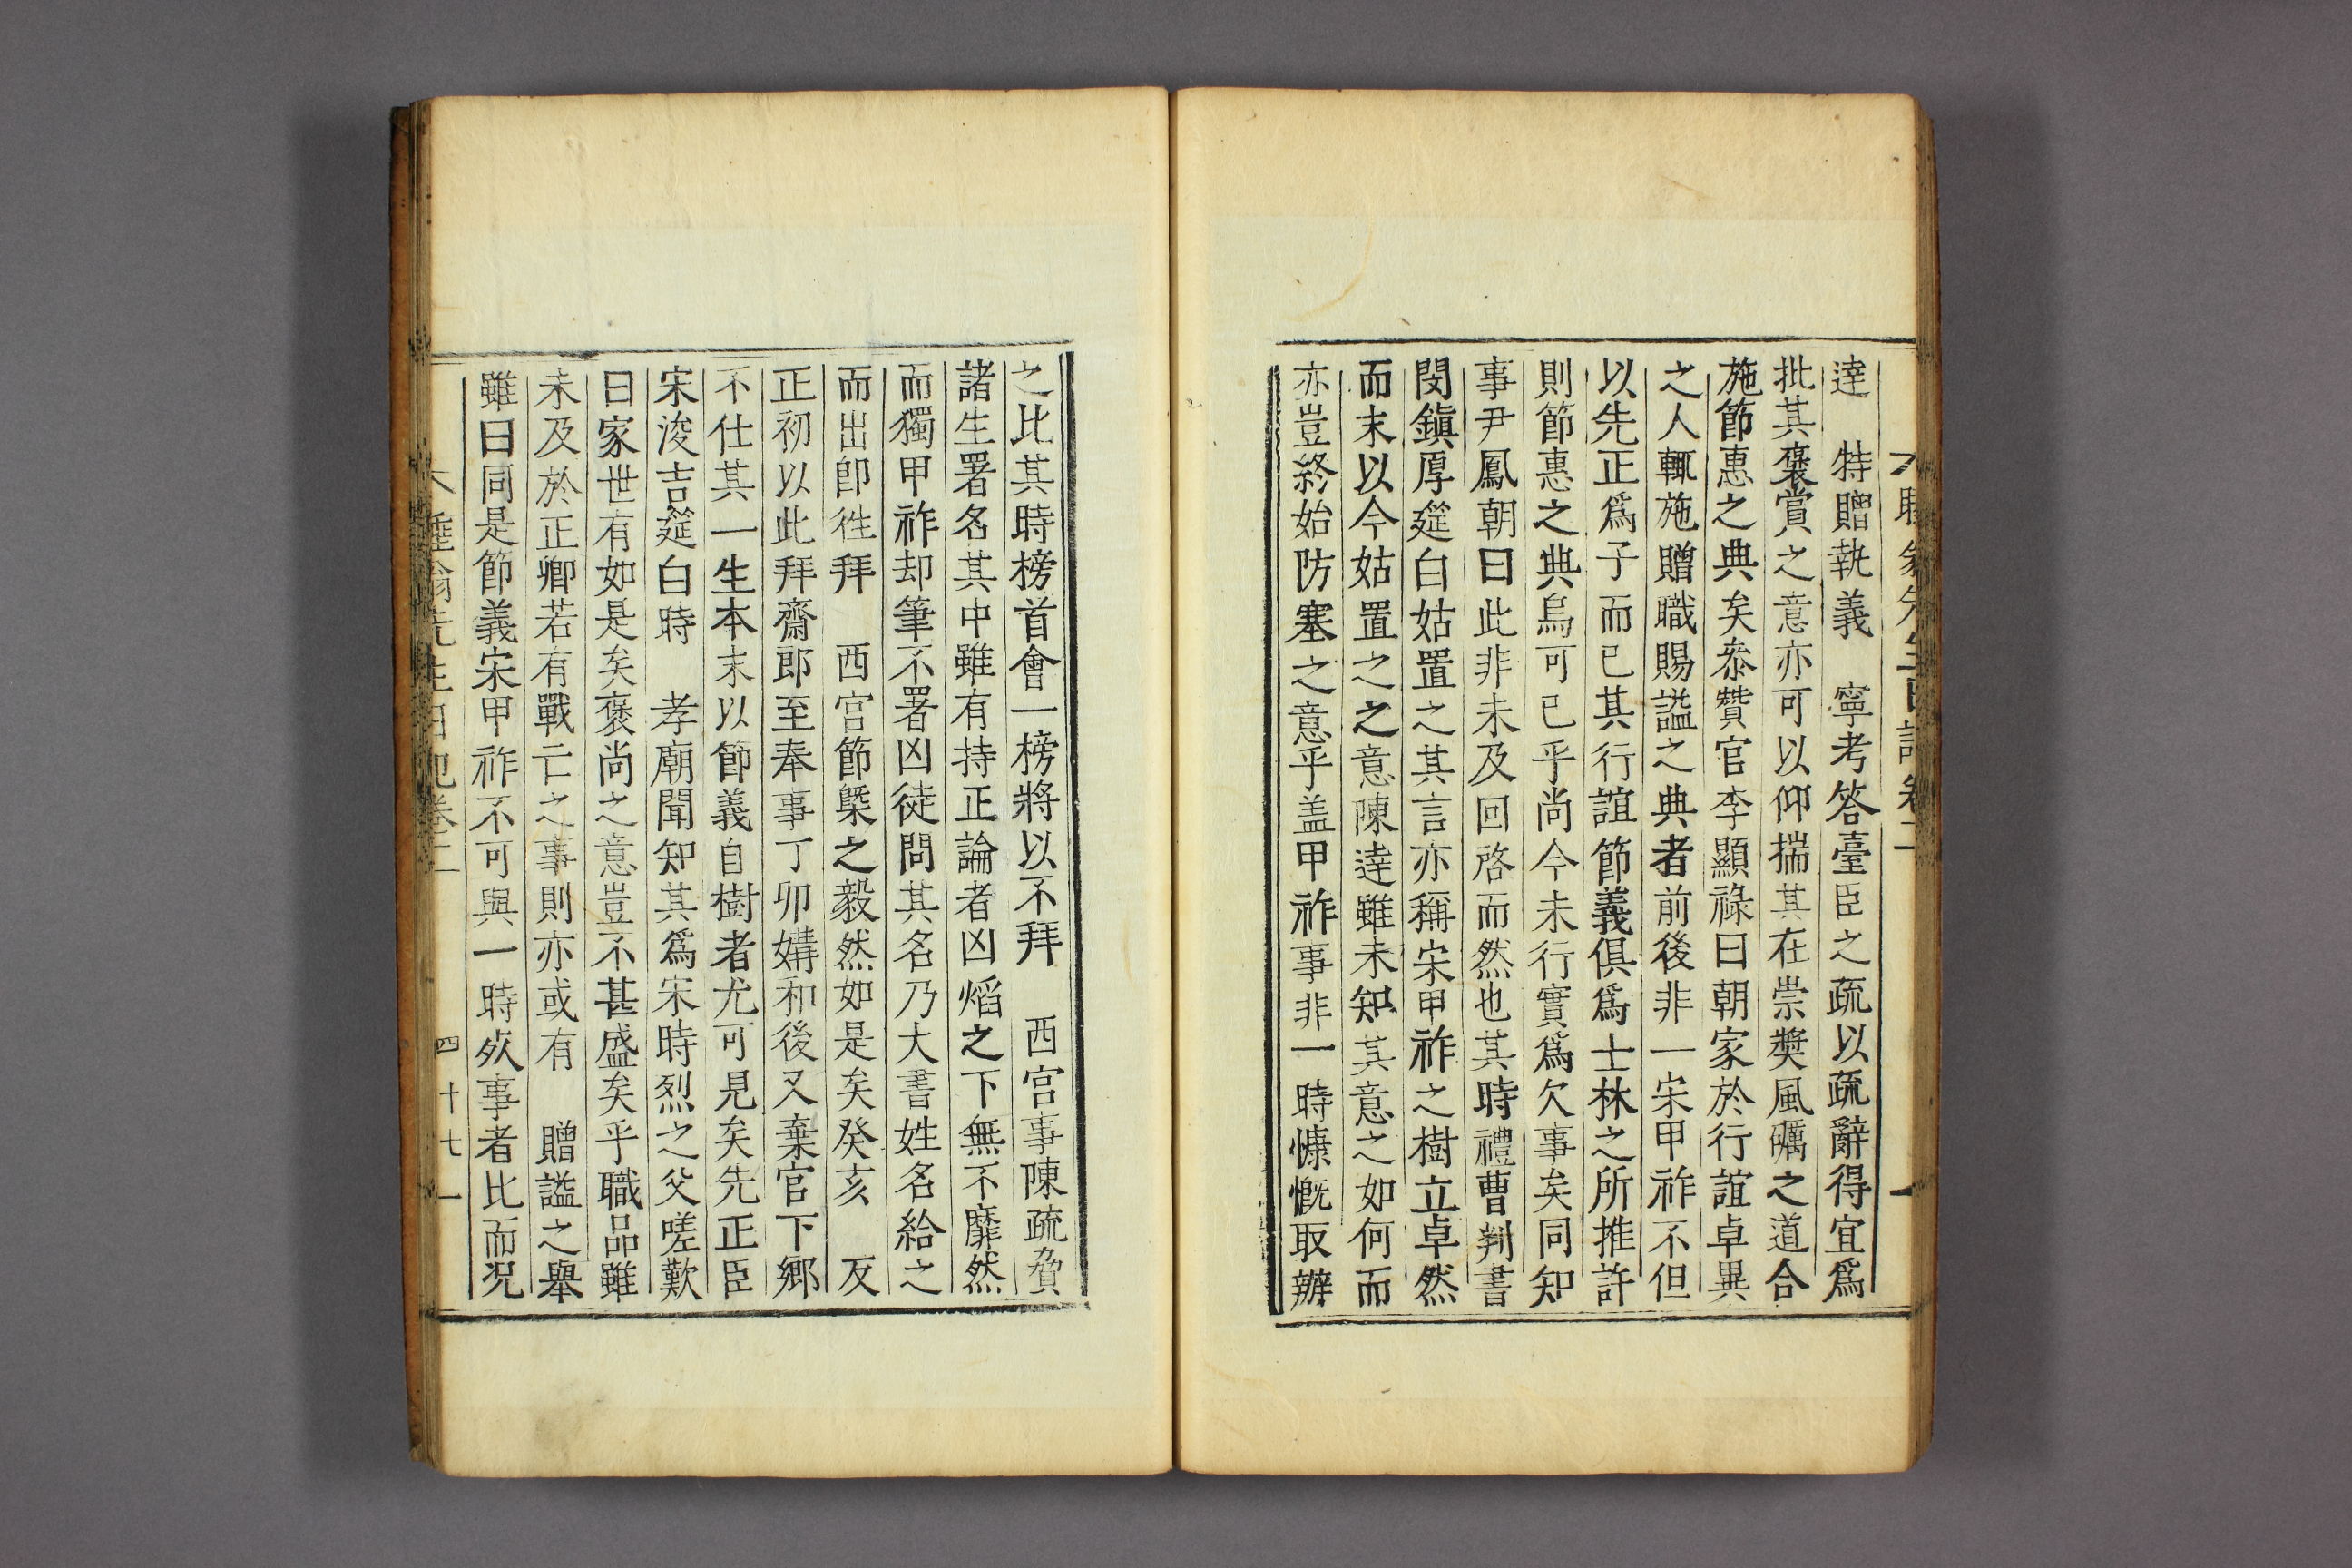 達 特贈執義 寧考答臺臣之疏以疏辭得宜爲
批其褒賞之意亦可以仰揣其在崇奬風礪之道合
施節惠之典矣叅贊官李顯祿曰朝家於行誼卓異
之人輒施贈職賜謚之典者前後非一宋甲祚不但
以先正爲子而已其行誼節義俱爲士林之所推許
則節惠之典烏可已乎尚今未行實爲欠事矣同知
事尹鳳朝曰此非未及回啓而然也其時禮曹判書
閔鎭厚筵白姑置之其言亦稱宋甲祚之樹立卓然
而末以今姑置之之意陳達雖未知其意之如何而
亦豈終始防塞之意乎盖甲祚事非一時慷慨取辦
之比其時榜首會一榜將以不拜 西宮事陳疏脅
諸生署名其中雖有持正論者凶焰之下無不靡然
而獨甲祚却筆不署凶徒問其名乃大書姓名給之
而出卽徃拜 西宮節槩之毅然如是矣癸亥 反
正初以此拜齋郎至奉事丁卯媾和後又棄官下鄉
不仕其一生本末以節義自樹者尤可見矣先正臣
宋浚吉筵白時 孝廟聞知其爲宋時烈之父嗟歎
曰家世有如是矣褒尚之意豈不甚盛矣乎職品雖
未及於正卿若有戰亡之事則亦或有 贈謚之舉
雖曰同是節義宋甲祚不可與一時死事者比而况
先生日記卷二 四十七